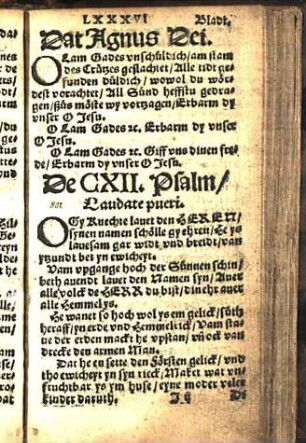 LXXXVI Bladt.
Dat Agnus Dei.
O Lam Gades vnschüldich / am stam
des Crützes geslachtet / Alle tidt ge-
funden düldich / wowol du wör-
dest vorachtet / All Sünd heffstu gedra-
gen / süs möste wy vortzagen / Erbarm dy
vnser O Jesu.
O Lam Gades ꝛc. Erbarm dy vnser
O Jesu.
O Lam Gades ꝛc. Giff vns dinen fre-
de / Erbarm dy vnser O Jesu.
De CXII. Psalm /
Laudate pueri.
OGy Knechte lauet den HEREN /
synen namen schölle gy ehren / He ys
lauesam gar widt vnd breidt / van
ytzundt bet yn ewicheyt.
Vam vpgange hoch der Sünnen schin /
beth auendt lauet den Namen syn / Auer
alle volck de HERR du bist / din ehr auer
alle Hemmel ys.
He wanet so hoch wol ys em gelick / süth
heraff / yn erde vnd Hemmelrick / Vam sta-
ue der erden mackt he vpstan / vñ ock van
drecke den armen Man.
Dat he en sette den Försten gelick / vnd
tho ewicheyt yn syn rieck / Maket war vn-
fruchtbar ys ym huse / eyne moder veler
kinder daruth.
De